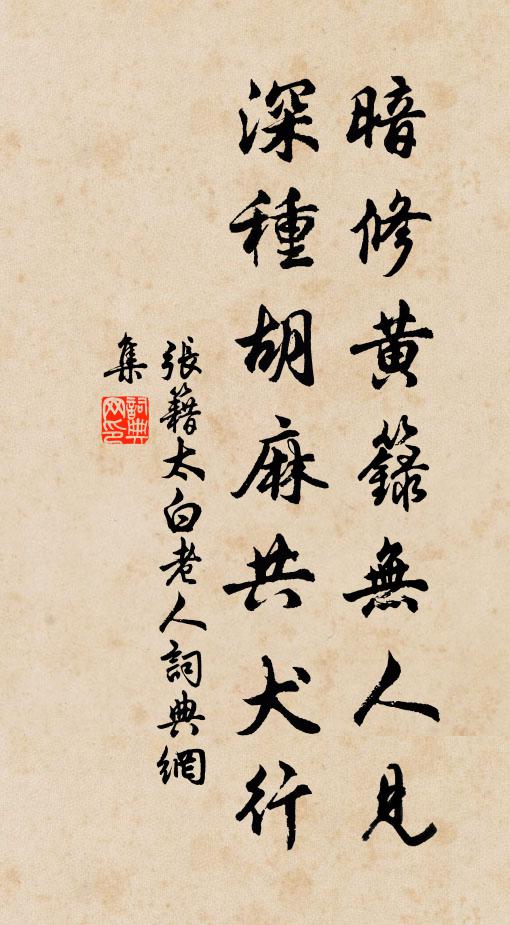 暗修黄籙無人見
深種胡麻共犬行
張籍太白老人詞典網
集
詞典網印